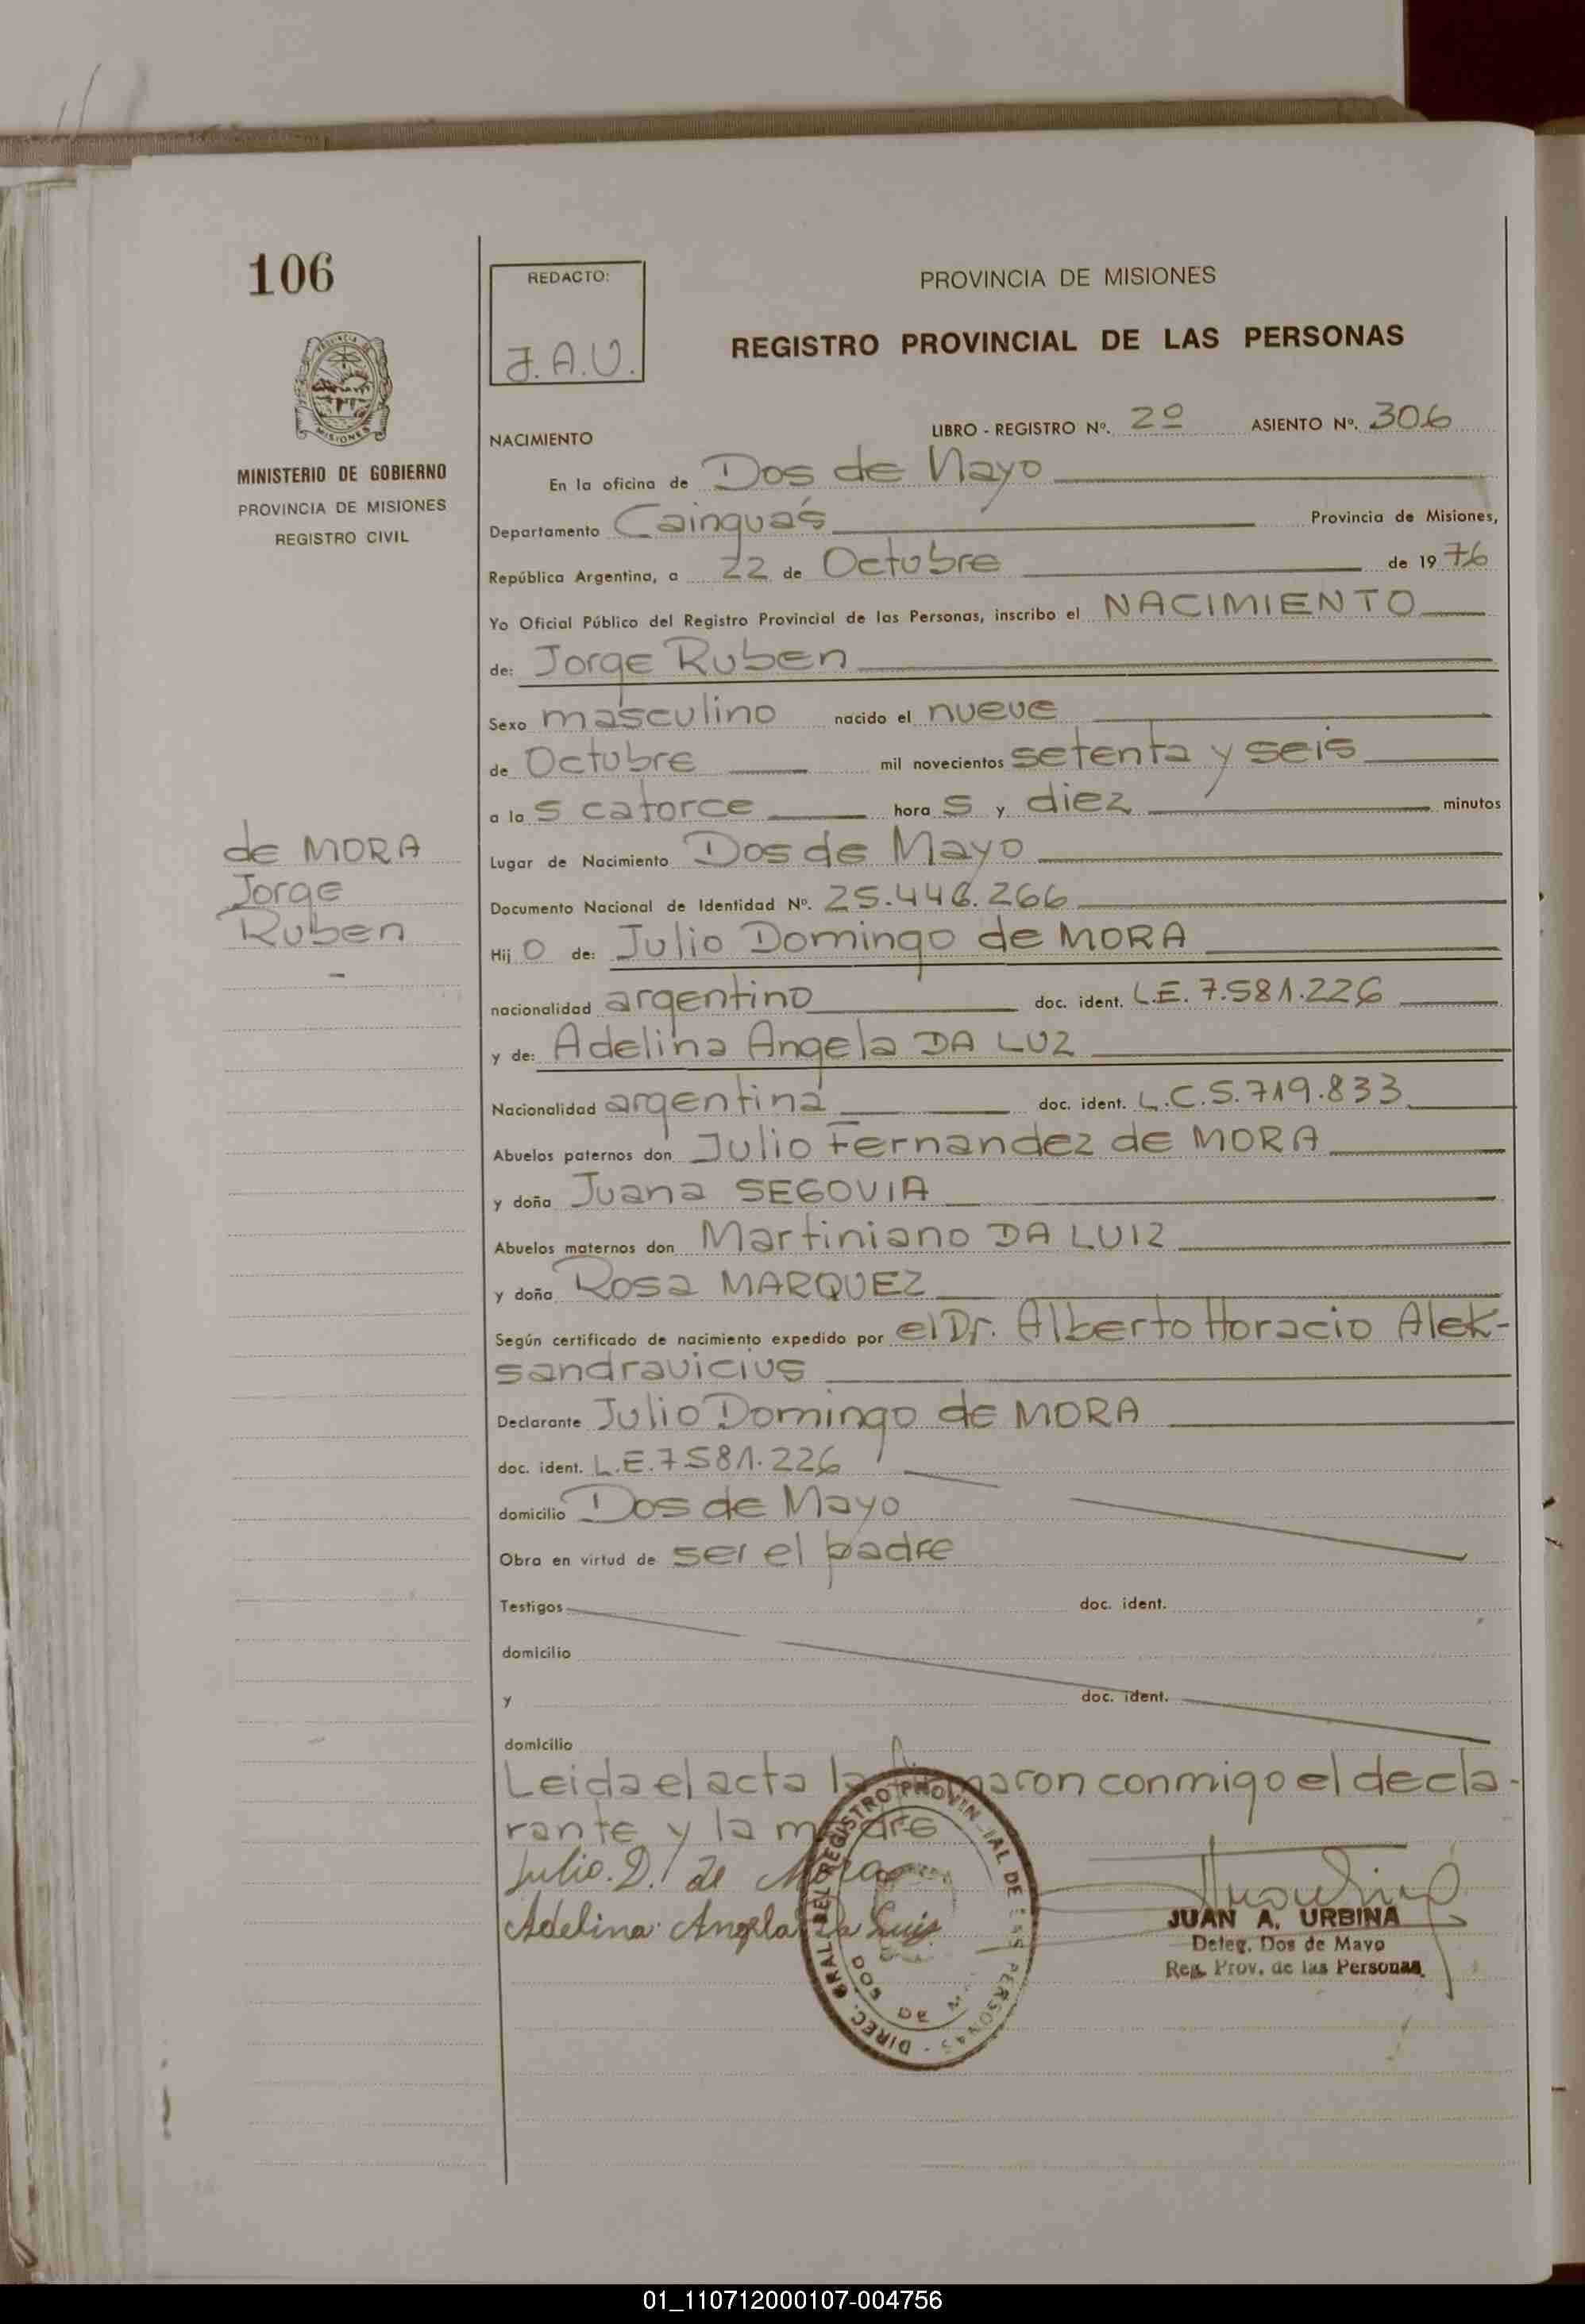 106
REDACTO:
J.A.U.
PROVINCIA DE MISIONES
REGISTRO PROVINCIAL DE LAS PERSONAS
MISIONES
MINISTERIO DE GOBIERNO
PROVINCIA DE MISIONES
REGISTRO CIVIL
NACIMIENTO LIBRO - REGISTRO Nº. 2º ASIENTO Nº. 306
En la oficina de Dos de Mayo
Departamento Cainguás Provincia de Misiones,
República Argentina, a 22 de Octubre de 1976
Yo Oficial Público del Registro Provincial de las Personas, inscribo el NACIMIENTO
de: Jorge Ruben
Sexo masculino nacido el nueve
de Octubre mil novecientos setenta y seis
a la s catorce hora s y diez minutos
de MORA
Jorge
Ruben
Lugar de Nacimiento Dos de Mayo
Documento Nacional de Identidad Nº. 25.446.266
Hij o de: Julio Domingo de MORA
nacionalidad argentino doc. ident. L.E. 7.581.226
y de: Adelina Angela DA LUZ
Nacionalidad argentina doc. ident. L.C.5.719.833
Abuelos paternos don Julio Fernandez de MORA
y doña Juana SEGOVIA
Abuelos maternos don Martiniano DA LUIZ
y doña Rosa MARQUEZ
Según certificado de nacimiento expedido por el Dr. Alberto Horacio Alek-
sandravicius
Declarante Julio Domingo de MORA
doc. ident. L.E.7581.226
domicilio Dos de Mayo
Obra en virtud de ser el padre
Testigos doc. ident.
domicilio
y doc. ident.
domicilio
Leida el acta la firmaron conmigo el decla-
rante y la madre
Julio. D. de Mora
Adelina Angela Da Luis
DIREC. GRAL. DEL REGISTRO PROVINCIAL DE LAS PERSONAS
JUAN A. URBINA
Deleg. Dos de Mayo
Reg. Prov. de las Personas
01_110712000107-004756